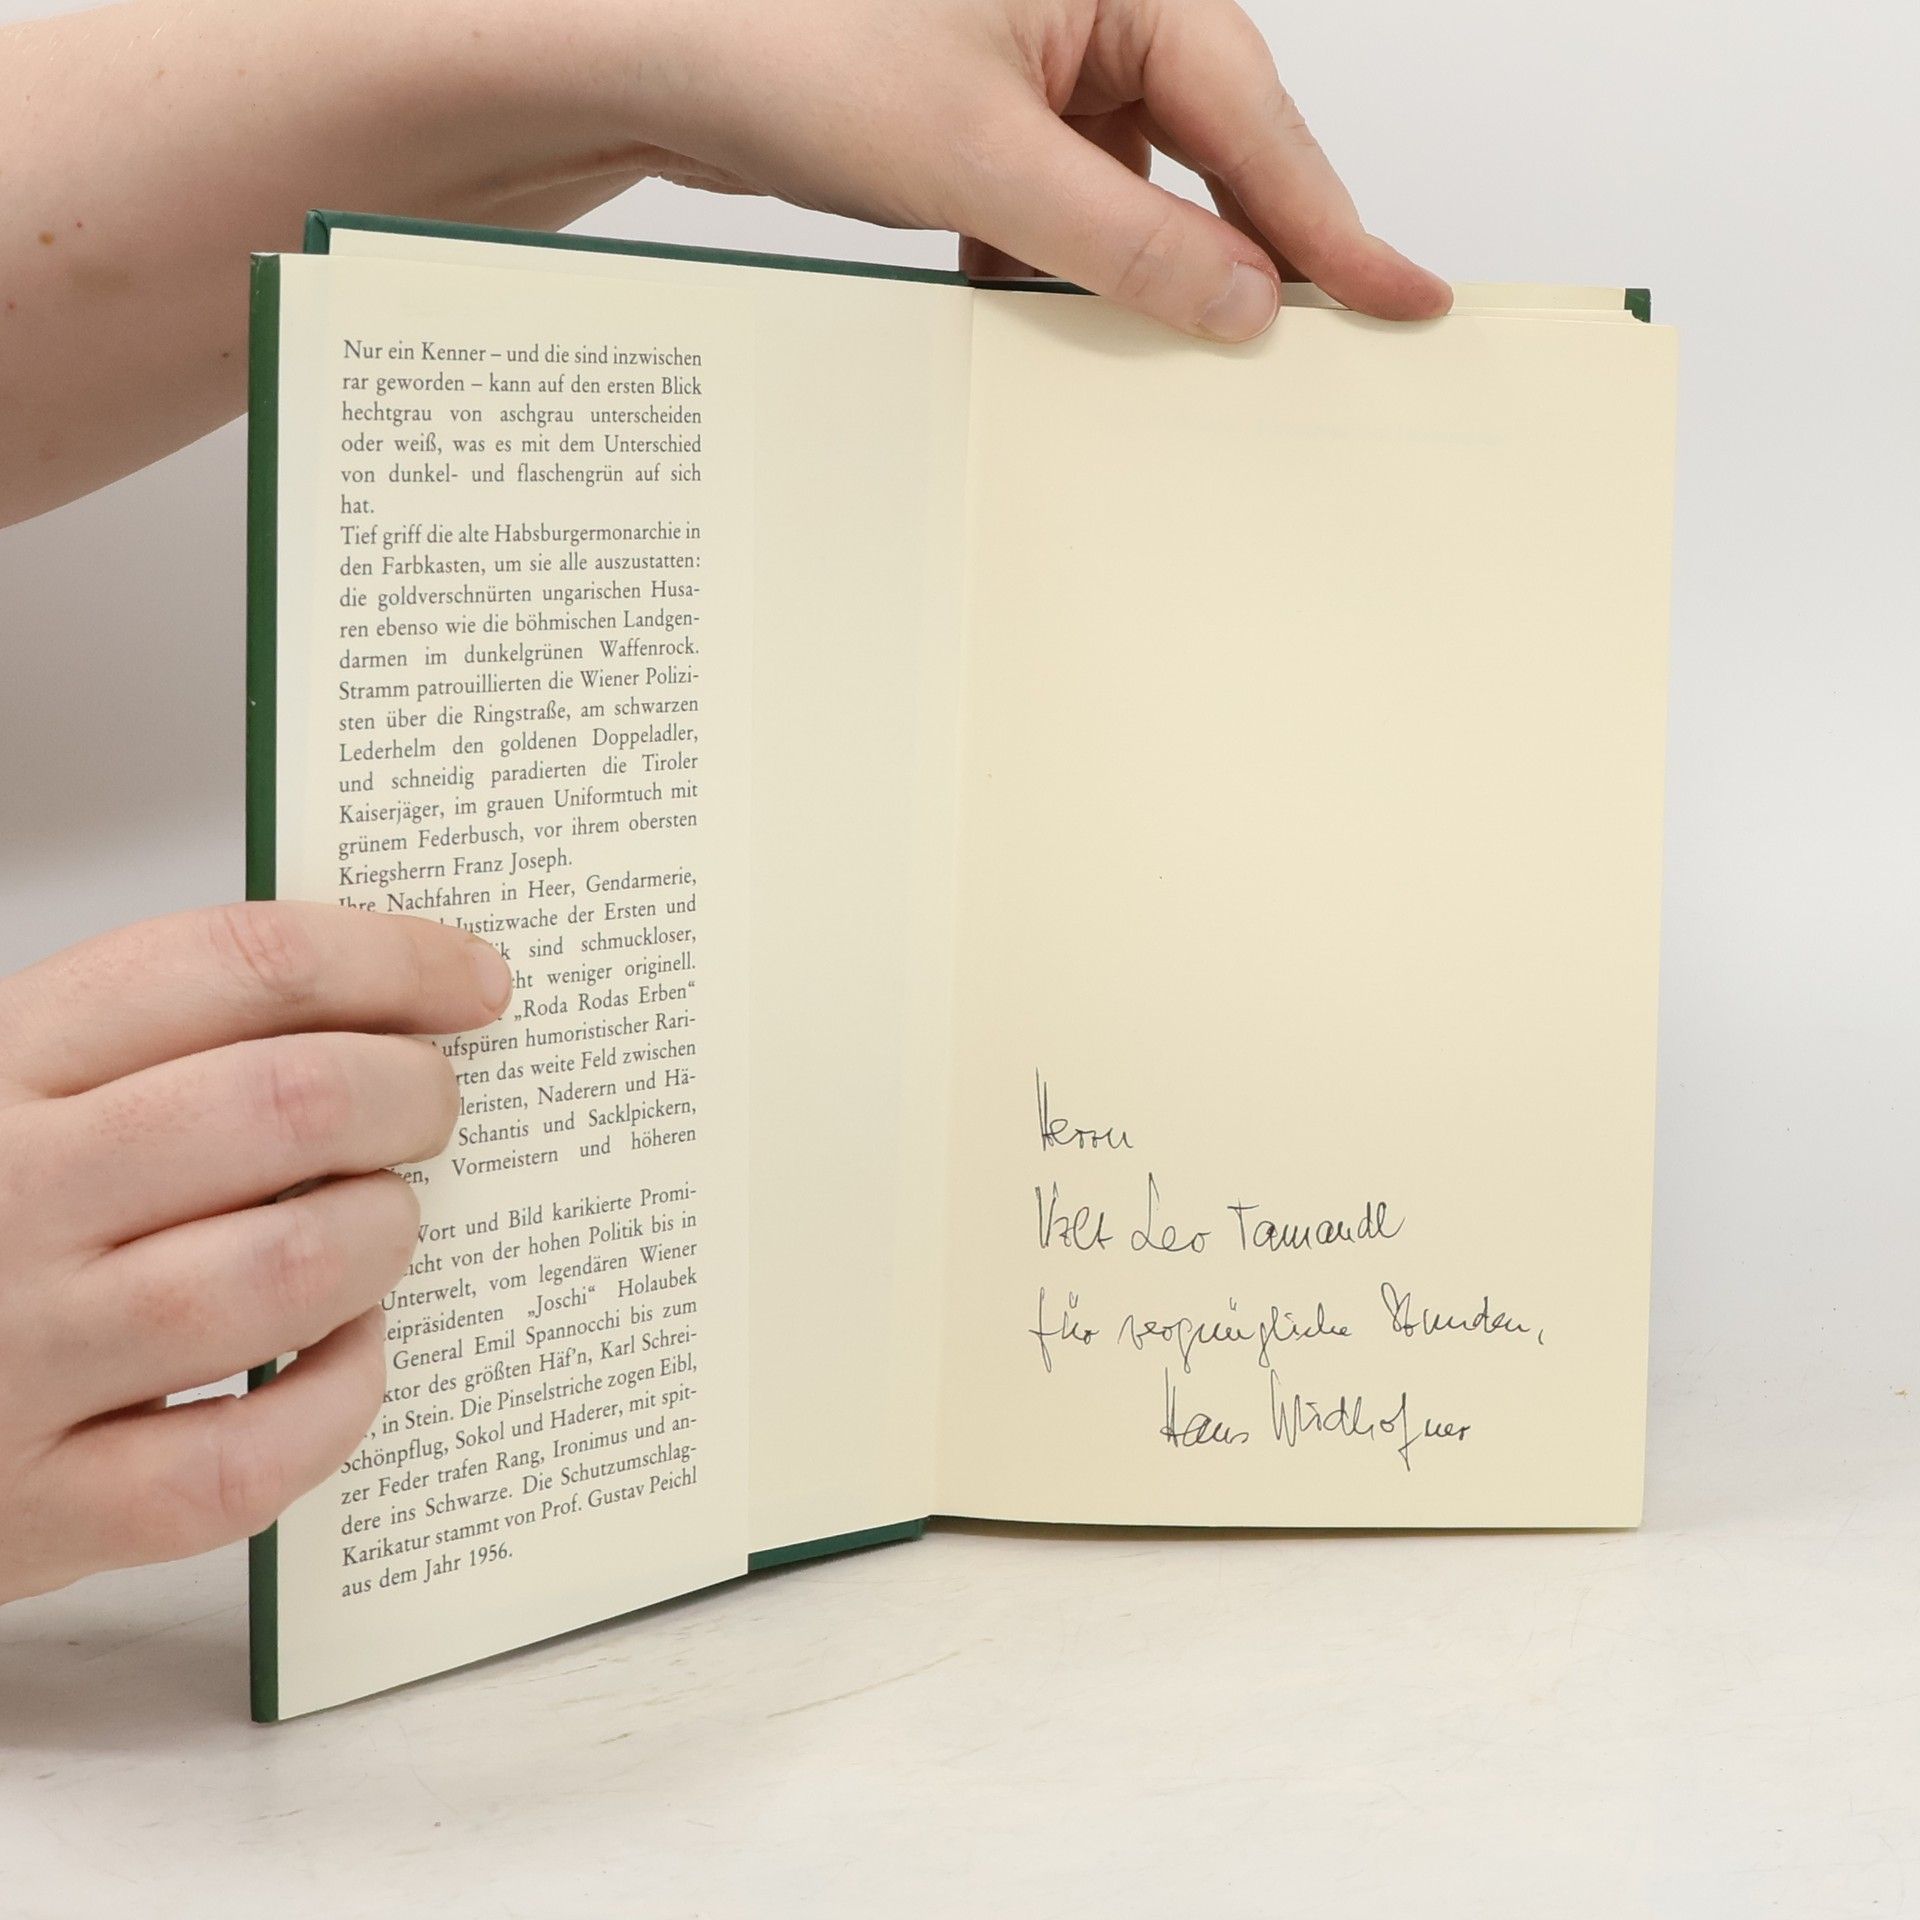 Nur ein Kenner – und die sind inzwischen
rar geworden – kann auf den ersten Blick
hechtgrau von aschgrau unterscheiden
oder weiß, was es mit dem Unterschied
von dunkel- und flaschengrün auf sich
hat.
Tief griff die alte Habsburgermonarchie in
den Farbkasten, um sie alle auszustatten:
die goldverschnürten ungarischen Husa-
ren ebenso wie die böhmischen Landgen-
darmen im dunkelgrünen Waffenrock.
Stramm patrouillierten die Wiener Polizi-
sten über die Ringstraße, am schwarzen
Lederhelm den goldenen Doppeladler,
und schneidig paradierten die Tiroler
Kaiserjäger, im grauen Uniformtuch mit
grünem Federbusch, vor ihrem obersten
Kriegsherrn Franz Joseph.
Ihre Nachfahren in Heer, Gendarmerie,
Justizwache der Ersten und
sind schmuckloser,
weniger originell.
„Roda Rodas Erben“
ufspüren humoristischer Rari-
rten das weite Feld zwischen
leristen, Naderern und Hä-
Schantis und Sacklpickern,
Vormeistern und höheren
Wort und Bild karikierte Promi-
icht von der hohen Politik bis in
Unterwelt, vom legendären Wiener
eipräsidenten „Joschi“ Holaubek
General Emil Spannocchi bis zum
ktor des größten Häf’n, Karl Schrei-
in Stein. Die Pinselstriche zogen Eibl,
Schönpflug, Sokol und Haderer, mit spit-
zer Feder trafen Rang, Ironimus und an-
dere ins Schwarze. Die Schutzumschlag-
Karikatur stammt von Prof. Gustav Peichl
aus dem Jahr 1956.
Herrn
Vzlt Leo Tamandl
für vergnügliche Stunden,
Hans Widhofner